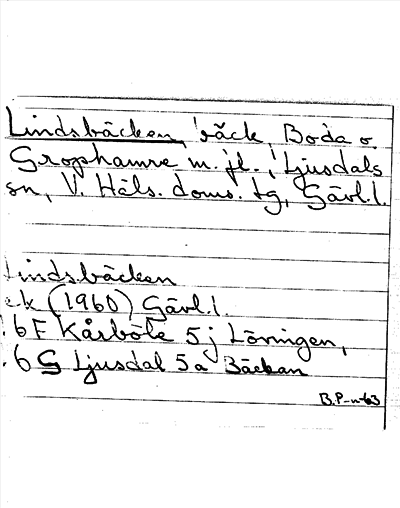 Lindsbäcken, bäck, Boda o.
Grophamre m. fl., Ljusdals
sn, V. Häls. doms. tg, Gävl.l.
Lindsbäcken
ek (1960) Gävl.l.
6 F Kårböle 5 j Löningen,
6 G Ljusdal 5 a Bäckan
B.P-n-63